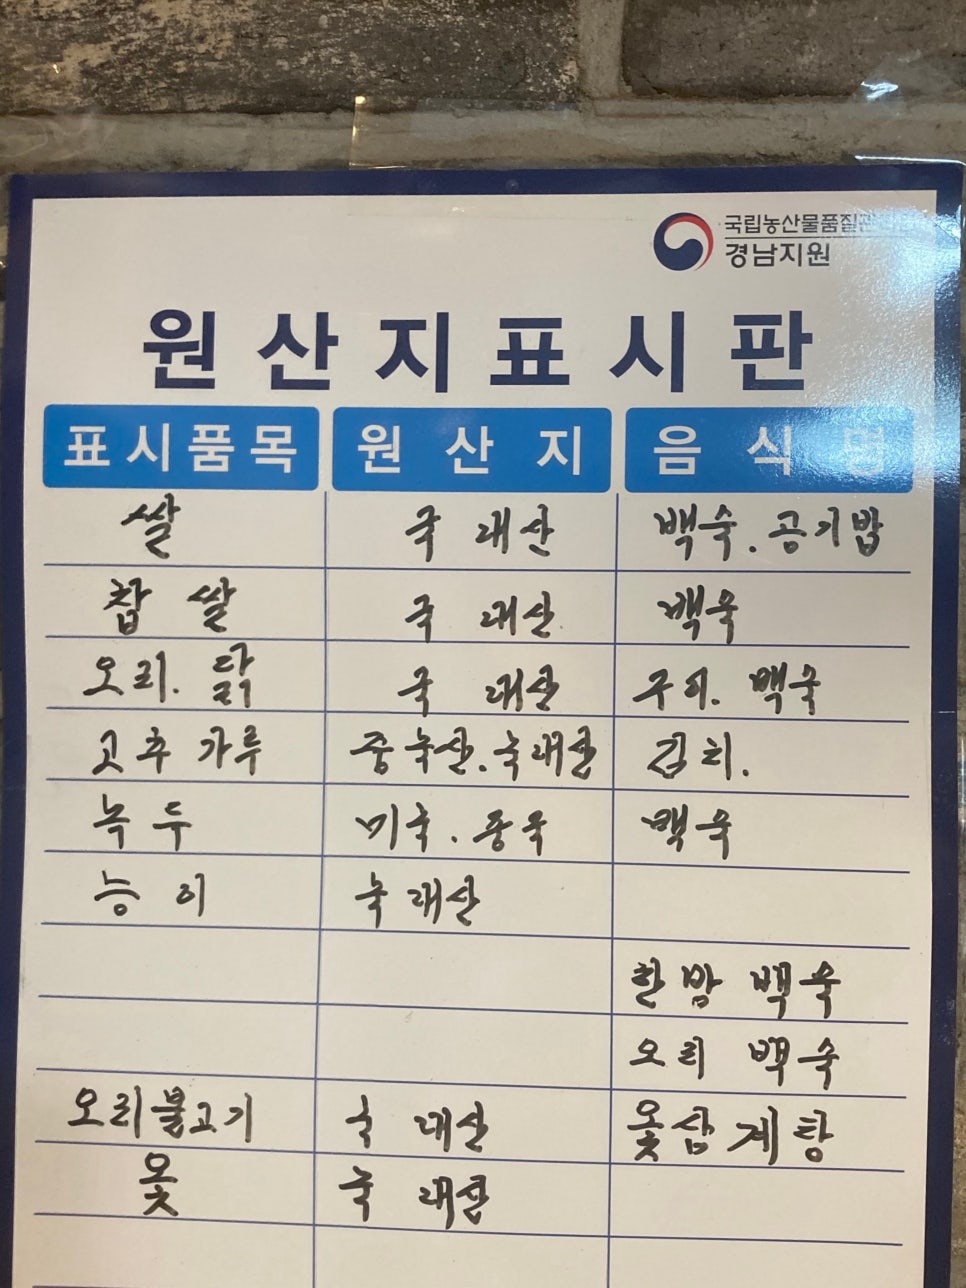 국립농산물품질관리원
경남지원
원산지표시판
표시품목 원산지 음식명
쌀 국내산 백숙. 공기밥
찹쌀 국내산 백숙
오리. 닭 국내산 구이. 백숙
고추가루 중국산. 국내산 김치.
녹두 미국. 중국 백숙
능이 국내산
한방백숙
오리 백숙
오리불고기 국내산 옻삼계탕
옻 국내산